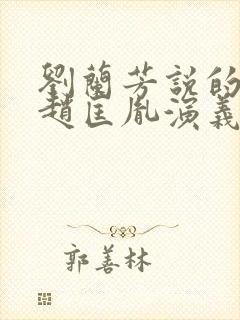 劉蘭芳説的
趙匡胤演義
郭善林